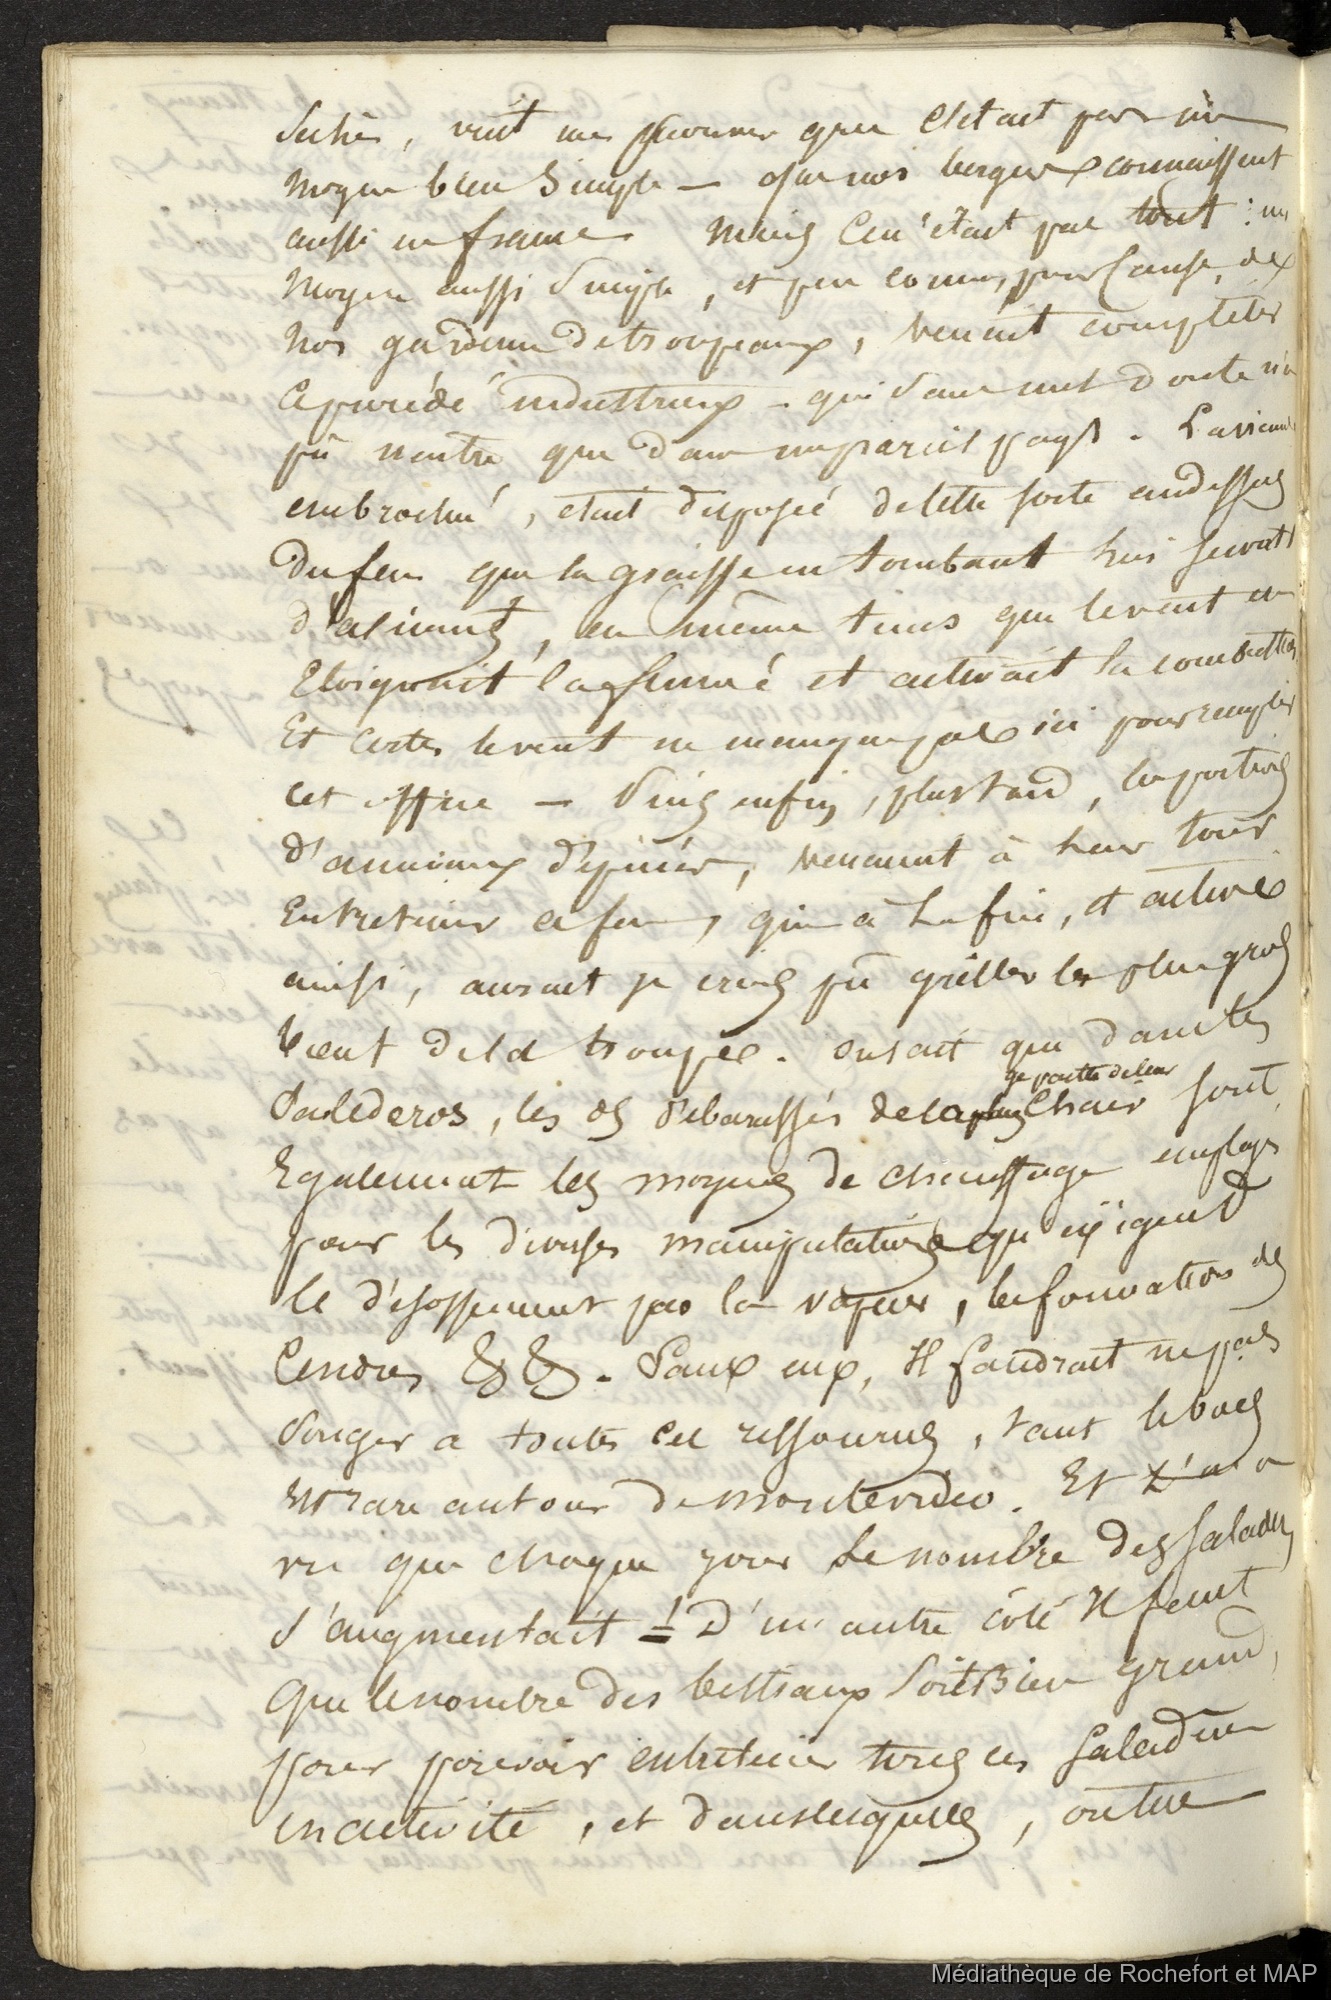 vint me prouver que c'était par un
moyen bien simple — que nos bergers connaissent
aussi en france. Mais ce n'était pas tout : un
moyen aussi simple, et peu connu, pour cause, de
nos gardeurs de troupeaux, venait compléter
ce procédé industrieux — qui sans nul doute n'a
pû naitre que dans un pareil pays. La viande
embrochée, était disposée de telle sorte audessus
du feu que la graisse en tombant lui servait
d'aliment, en même tems que le vent en
Eloignait la fumée et activait la combustion
Et certes le vent ne manque pas ici pour remplir
cet office — Puis enfin, plus tard, les portions
d'animaux venaient à leur tour
Entretenir ce feu, qui à la fin, et activé
ainsi, aurait je crois pû griller le plus gros
bœuf de la troupe. On sait que dans les
Saladeros, les os débarassés de la plus
gde partie de leur
Chair sont
Egalement les moyens de chauffage employés
pour les diverses manipulations qu'exigent
le désossement par la vapeur, la formation des
Cendres &c &c. Sans eux, Il faudrait ne pas
songer a toutes ces ressources, tant le bois
Est rare autour de Montevideo. Et l'on a
vu que chaque jour Le nombre des Saladeros
s'augmentait ! D'un autre côté Il faut
Que le nombre des bestiaux soit Bien grand,
pour pouvoir entretenir tous ces Saladeros
en activité, et dans lesquels, outre
Médiathèque de Rochefort et MAP